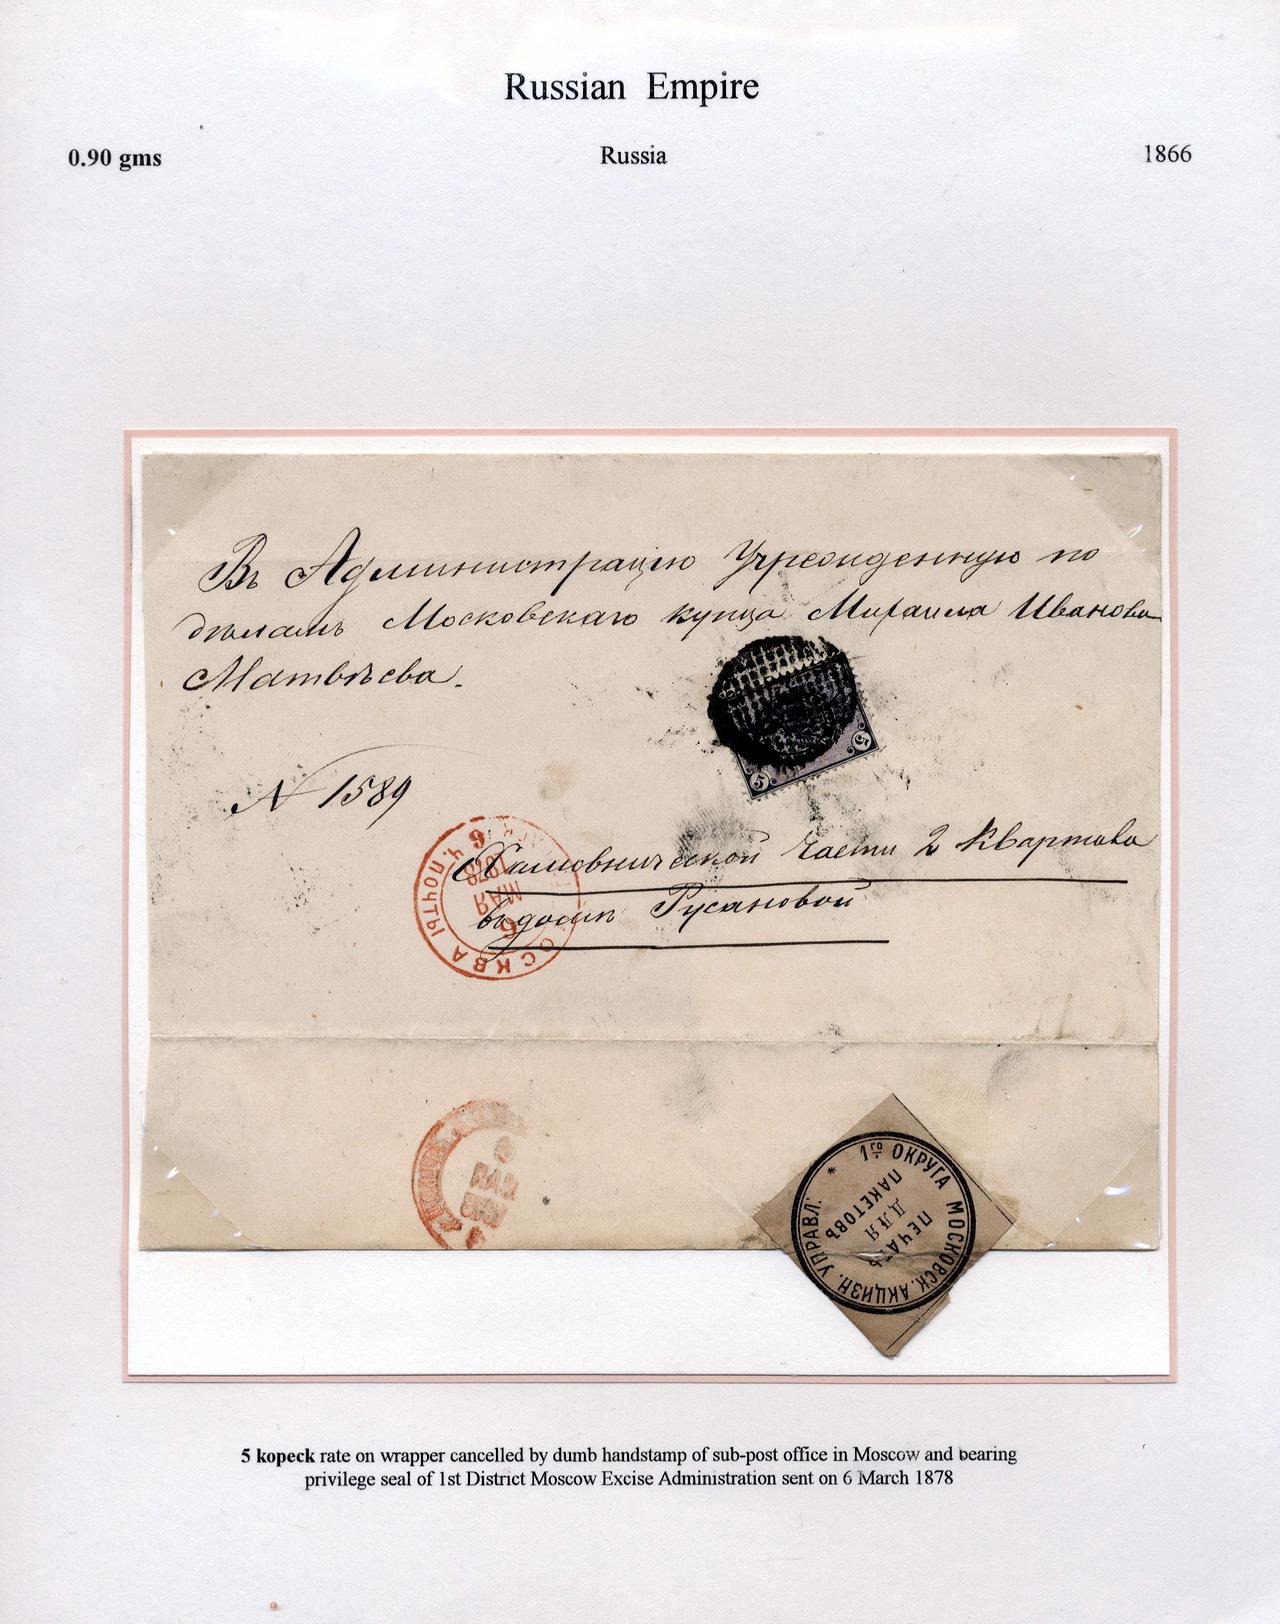 Russian Empire
0.90 gms
Russia
1866
Въ Администрацію Учрежденную по
дѣламъ Московскаго купца Михаила Иванова
Матвѣева.
5 5
N 1589
Хамовнической части 2 Квартала
въ домѣ Русановой
МОСКВА
ПОЧТЫ
6
МАЯ
1878
МАЯ
1878
1го ОКРУГА МОСКОВСК. АКЦИЗН. УПРАВЛ. *
ПЕЧАТЬ
ДЛЯ
ПАКЕТОВЪ
5 kopeck rate on wrapper cancelled by dumb handstamp of sub-post office in Moscow and bearing
privilege seal of 1st District Moscow Excise Administration sent on 6 March 1878